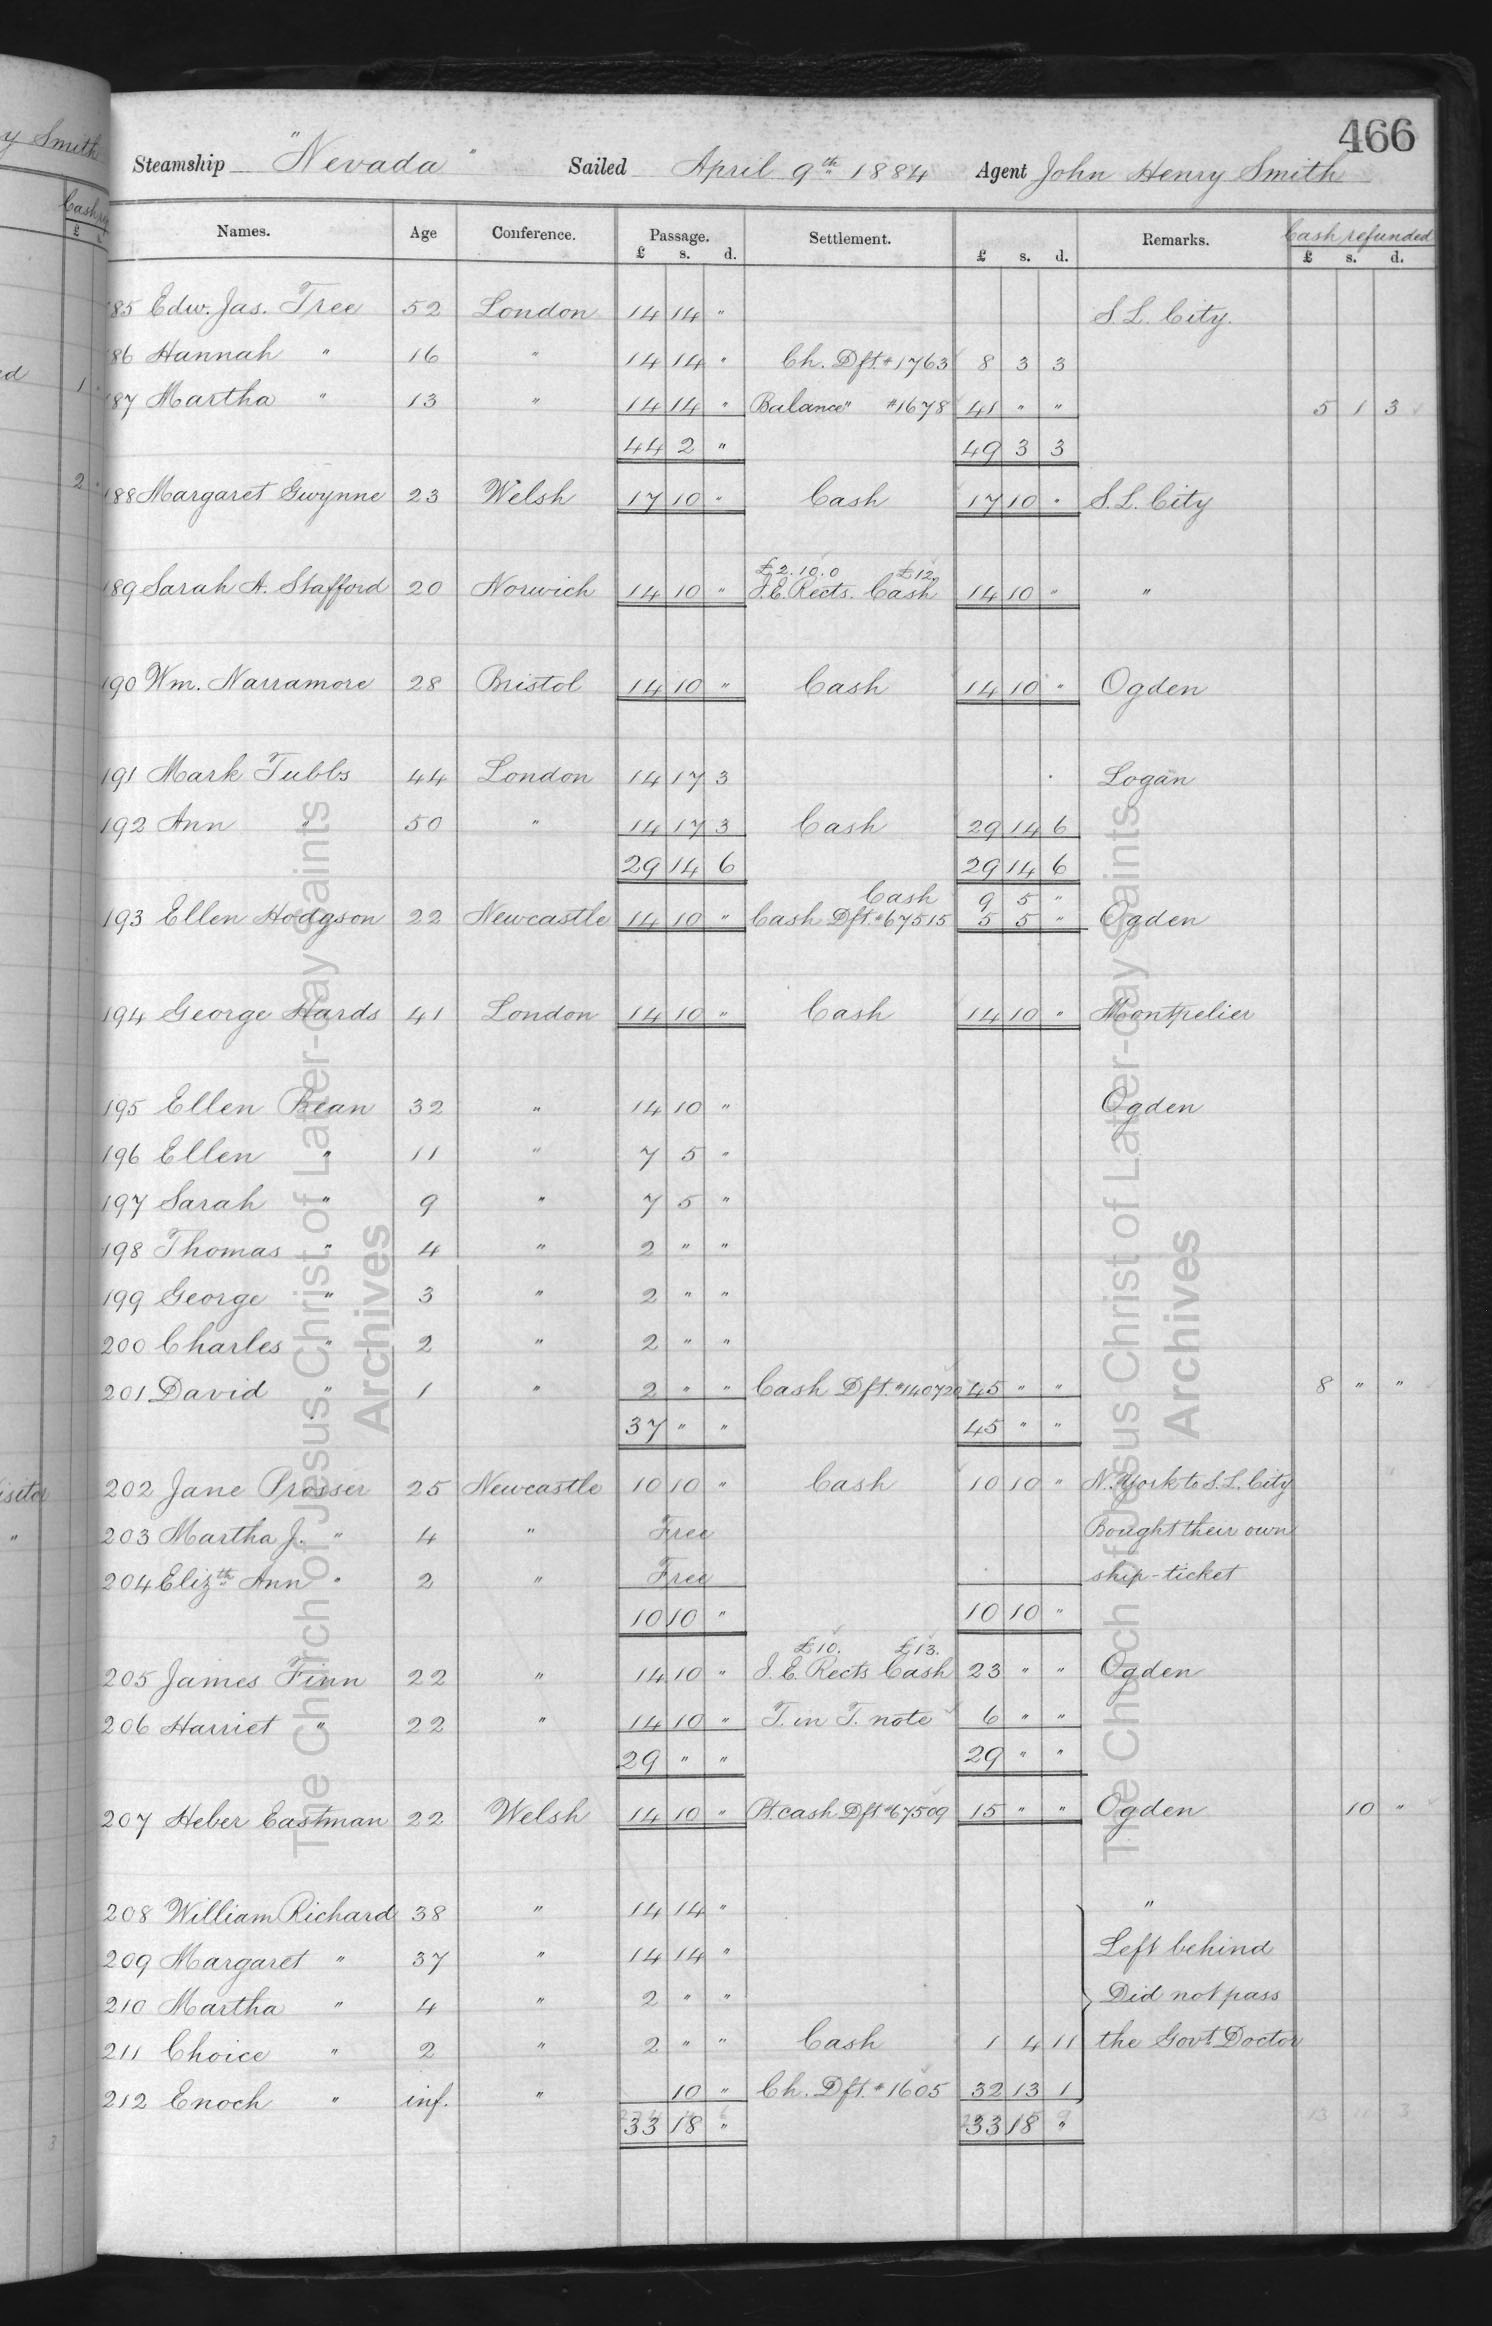 466
Steamship "Nevada" Sailed April 9th 1884 Agent John Henry Smith
Names. Age Conference. Passage. Settlement. Remarks. Cash refunded
£ s. d. £ s. d. £ s. d.
185 Edw. Jas. Tree 52 London 14 14 " S. L. City.
186 Hannah " 16 " 14 14 " Ch. Dft. #1763 8 3 3
187 Martha " 13 " 14 14 " Balance " #1678 41 " " 5 1 3
44 2 " 49 3 3
188 Margaret Gwynne 23 Welsh 17 10 " Cash 17 10 " S. L. City
£2.10.0 £12.
189 Sarah A. Stafford 20 Norwich 14 10 " I. E. Rects. Cash 14 10 " "
190 Wm. Narramore 28 Bristol 14 10 " Cash 14 10 " Ogden
191 Mark Tubbs 44 London 14 17 3 Logan
192 Ann " 50 " 14 17 3 Cash 29 14 6
29 14 6 29 14 6
Cash 9 5 "
193 Ellen Hodgson 22 Newcastle 14 10 " Cash Dft. #67515 5 5 " Ogden
194 George Hards 41 London 14 10 " Cash 14 10 " Montpelier
195 Ellen Bean 32 " 14 10 " Ogden
196 Ellen " 11 " 7 5 "
197 Sarah " 9 " 7 5 "
198 Thomas " 4 " 2 " "
199 George " 3 " 2 " "
200 Charles " 2 " 2 " "
201 David " 1 " 2 " " Cash Dft. #140720 45 " " 8 " "
37 " " 45 " "
202 Jane Prosser 25 Newcastle 10 10 " Cash 10 10 " N. York to S. L. City
203 Martha J. " 4 " Free Bought their own
204 Elizth Ann " 2 " Free ship-ticket
10 10 " 10 10 "
£10. £13.
205 James Finn 22 " 14 10 " I. E. Rects Cash 23 " " Ogden
206 Harriet " 22 " 14 10 " T. in T. note 6 " "
29 " " 29 " "
207 Heber Eastman 22 Welsh 14 10 " Pt. cash Dft #67509 15 " " Ogden 10 "
208 William Richard 38 " 14 14 " "
209 Margaret " 37 " 14 14 " Left behind
210 Martha " 4 " 2 " " Did not pass
211 Choice " 2 " 2 " " Cash 1 4 11 the Govt. Doctor
212 Enoch " inf. " 10 " Ch. Dft. #1605 32 13 1
33 18 " 33 18 " 13 11 3
The Church of Jesus Christ of Latter-day Saints
Archives
The Church of Jesus Christ of Latter-day Saints
Archives